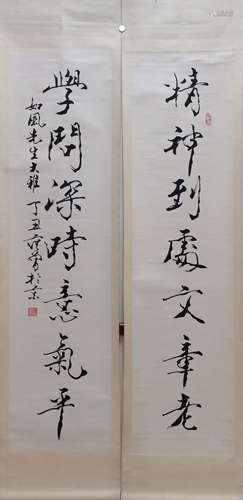 精神到處文章老
學問深時意氣平
如風先生大雅
丁丑范曾於京